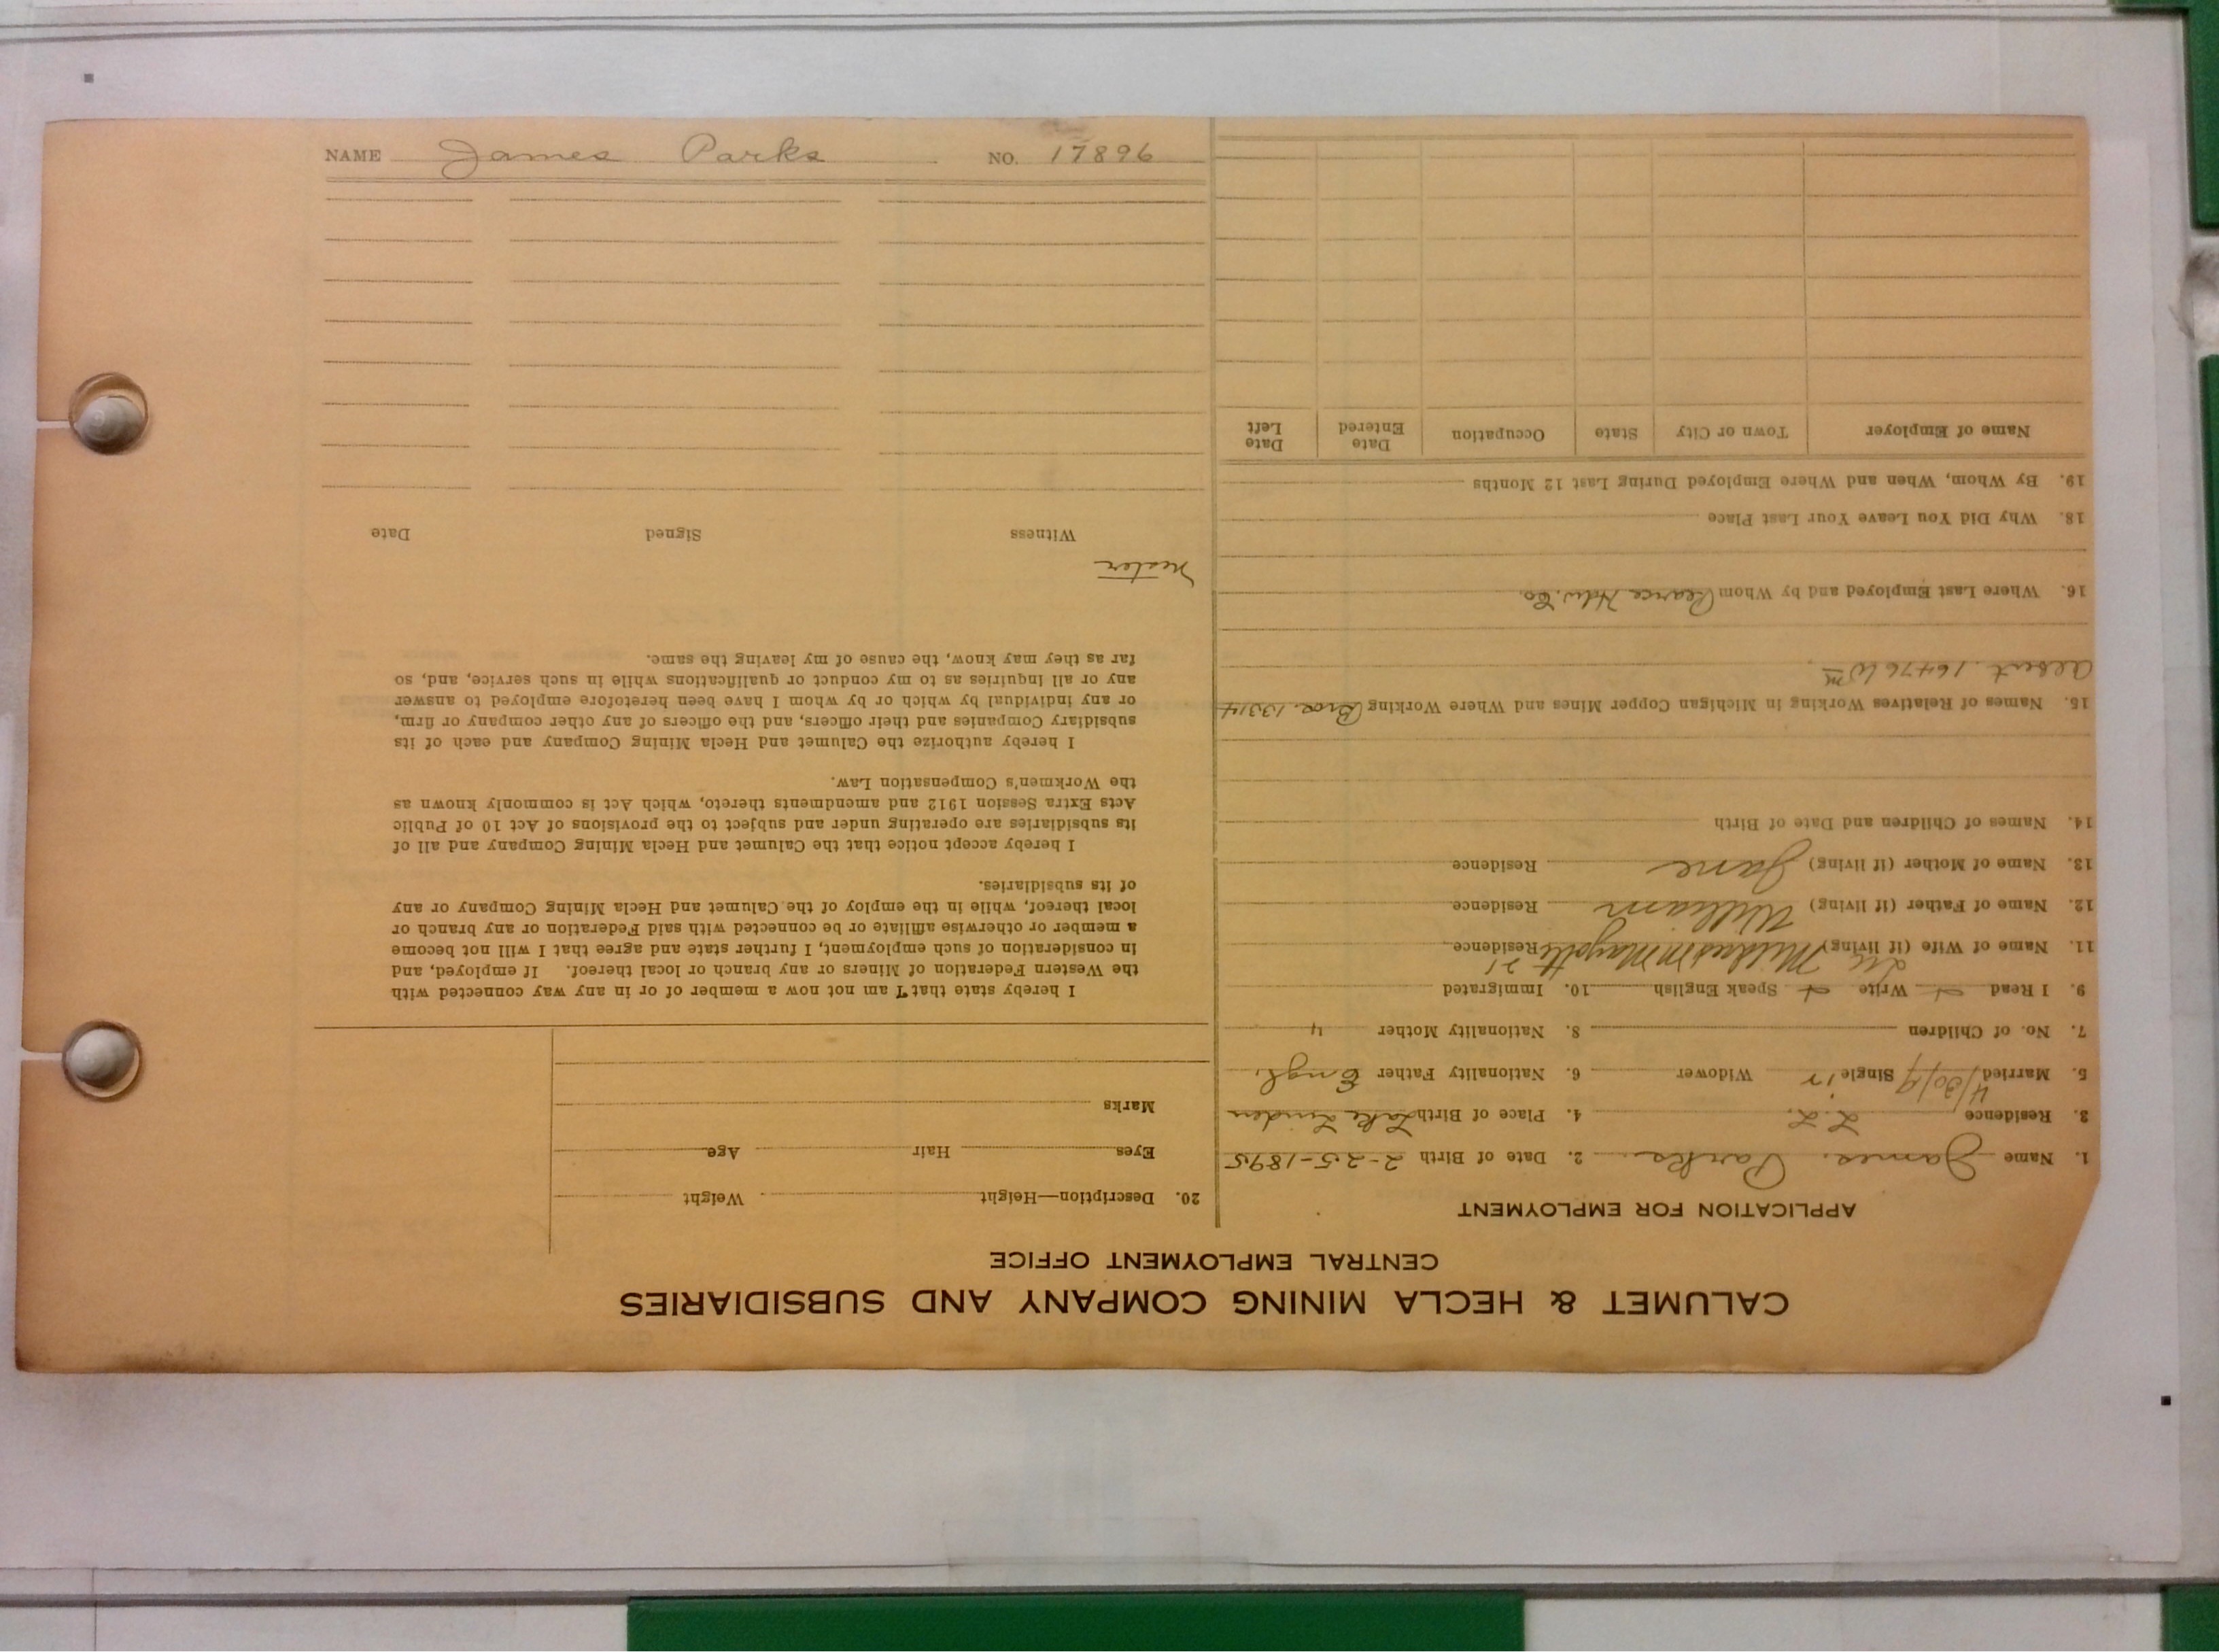 CALUMET & HECLA MINING COMPANY AND SUBSIDIARIES
CENTRAL EMPLOYMENT OFFICE
APPLICATION FOR EMPLOYMENT
1. Name James Parks 2. Date of Birth 2-25-1895
3. Residence L.L. 4. Place of Birth Lake Linden
5. Married 4/30/ Single Widower 6. Nationality Father Engl.
7. No. of Children 8. Nationality Mother "
9. I Read Write Speak English 10. Immigrated
11. Name of Wife (if living) Residence
12. Name of Father (if living) William Residence
13. Name of Mother (if living) Jane Residence
14. Names of Children and Date of Birth
15. Names of Relatives Working in Michigan Copper Mines and Where Working Bros. 13314
Albert 16476 Wm
16. Where Last Employed and by Whom Pearce Hdw. Co.
18. Why Did You Leave Your Last Place
19. By Whom, When and Where Employed During Last 12 Months
Name of Employer Town or City State Occupation Date Entered Date Left
20. Description—Height Weight
Eyes Hair Age
Marks
I hereby state that I am not now a member of or in any way connected with
the Western Federation of Miners or any branch or local thereof. If employed, and
in consideration of such employment, I further state and agree that I will not become
a member or otherwise affiliate or be connected with said Federation or any branch or
local thereof, while in the employ of the Calumet and Hecla Mining Company or any
of its subsidiaries.
I hereby accept notice that the Calumet and Hecla Mining Company and all of
its subsidiaries are operating under and subject to the provisions of Act 10 of Public
Acts Extra Session 1912 and amendments thereto, which Act is commonly known as
the Workmen's Compensation Law.
I hereby authorize the Calumet and Hecla Mining Company and each of its
subsidiary Companies and their officers, and the officers of any other company or firm,
or any individual by which or by whom I have been heretofore employed to answer
any or all inquiries as to my conduct or qualifications while in such service, and, so
far as they may know, the cause of my leaving the same.
Witness Signed Date
NAME James Parks NO. 17896